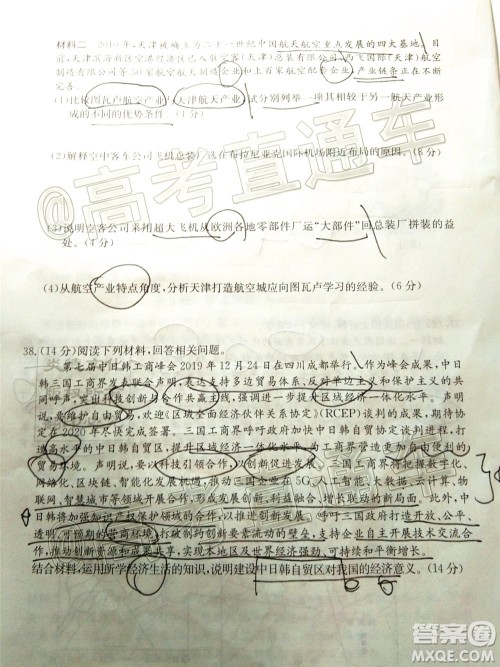 材料二 2010年，天津被确立为二十一世纪中国航天航空重点发展的四大基地。目
前，天津滨海新区空港经济区已入驻空客(天津)总装有限公司、西飞国际(天津)航空
制造有限公司等50家航空航天制造企业和上百家航空航天配套企业，产业链条正在不断
完善。
(1)比较图瓦卢航空产业与天津航天产业，试分别列举一项其相较于另一航天产业形
成的不同的优势条件。(4分)
(2)解释空中客车公司飞机总装厂选在布拉尼亚克国际机场附近布局的原因。(8分)
(3)说明空客公司采用超大飞机从欧洲各地零部件厂运“大部件”回总装厂拼装的益
处。(4分)
(4)从航空产业特点角度，分析天津打造航空城应向图瓦卢学习的经验。(6分)
@高考直通车
38.(14分)阅读下列材料，回答相关问题。
第七届中日韩工商峰会2019年12月24日在四川成都举行。作为峰会成果，中日
韩三国工商界发表联合声明，表达支持多边贸易体系、反对单边主义和保护主义的共
同呼声，突出科技创新与合作共赢主线，强调进一步提升区域经济一体化水平。声明
说，要维护自由贸易，欢迎《区域全面经济伙伴关系协定》(RCEP)谈判的成果，期待协
定在2020年尽快完成签署。三国工商界呼吁政府加快中日韩自贸协定谈判进程，打
造高水平，提升区域经济一体化水平，为工商界营造更加自由便利的
贸易环境。声明说，要以科技引领合作，以创新促进发展。三国工商界将把握数字化、
网络化、区块链、智能化发展机遇，推动三国企业在5G、人工智能、大数据、云计算、物
联网、智慧城市等领域合作，形成创新增长推动的新局面。此外，中
日韩将加强知识产权保护领域的合作，以推进创新发展。呼吁三国政府打造开放、公平、
透明、可预期的营商环境，打破制约创新要素流动的壁垒，支持企业自主开展技术交流合
作，推动创新资源和成果共享，实现本地区及世界经济强劲、可持续和平衡增长。
结合材料，运用所学经济生活的知识，说明建设中日韩自贸区对我国的经济意义。(14分)
答案圈
MXQE.COM